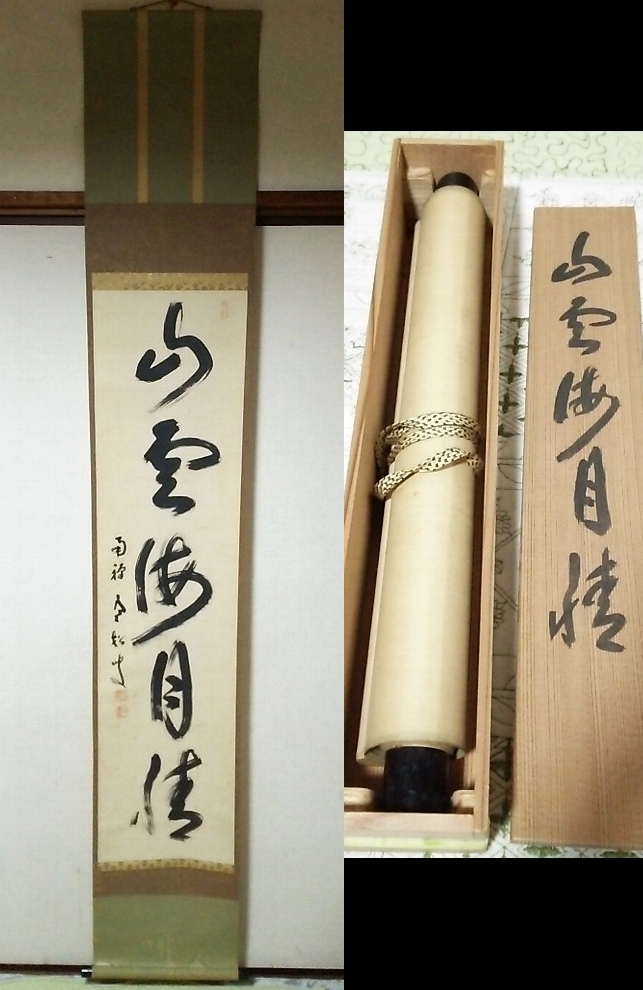 山雲海月情
南禅
山雲海月情